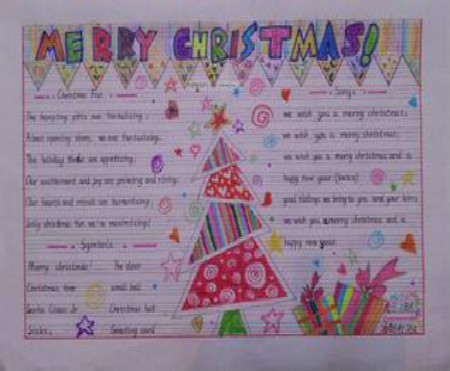 MERRY CHRISTMAS!
Christmas Fun
The tempting gifts are tantalising;
About opening them, we are fantasising.
The holiday are appetizing,
Our excitement and joy are and rising.
Our hearts and minds are
Jolly christmas fun we're maximizing!
Symbols
Merry christmas! The deer
Christmas tree small bell
Santa Claus Jr. Christmas hat
Socks Greeting card
Songs
we wish you a merry christmas;
we wish you a merry christmas;
we wish you a merry christmas and a
happy new year (twice)
good tidings we bring to you and your
we wish you a merry christmas and a
happy new year.